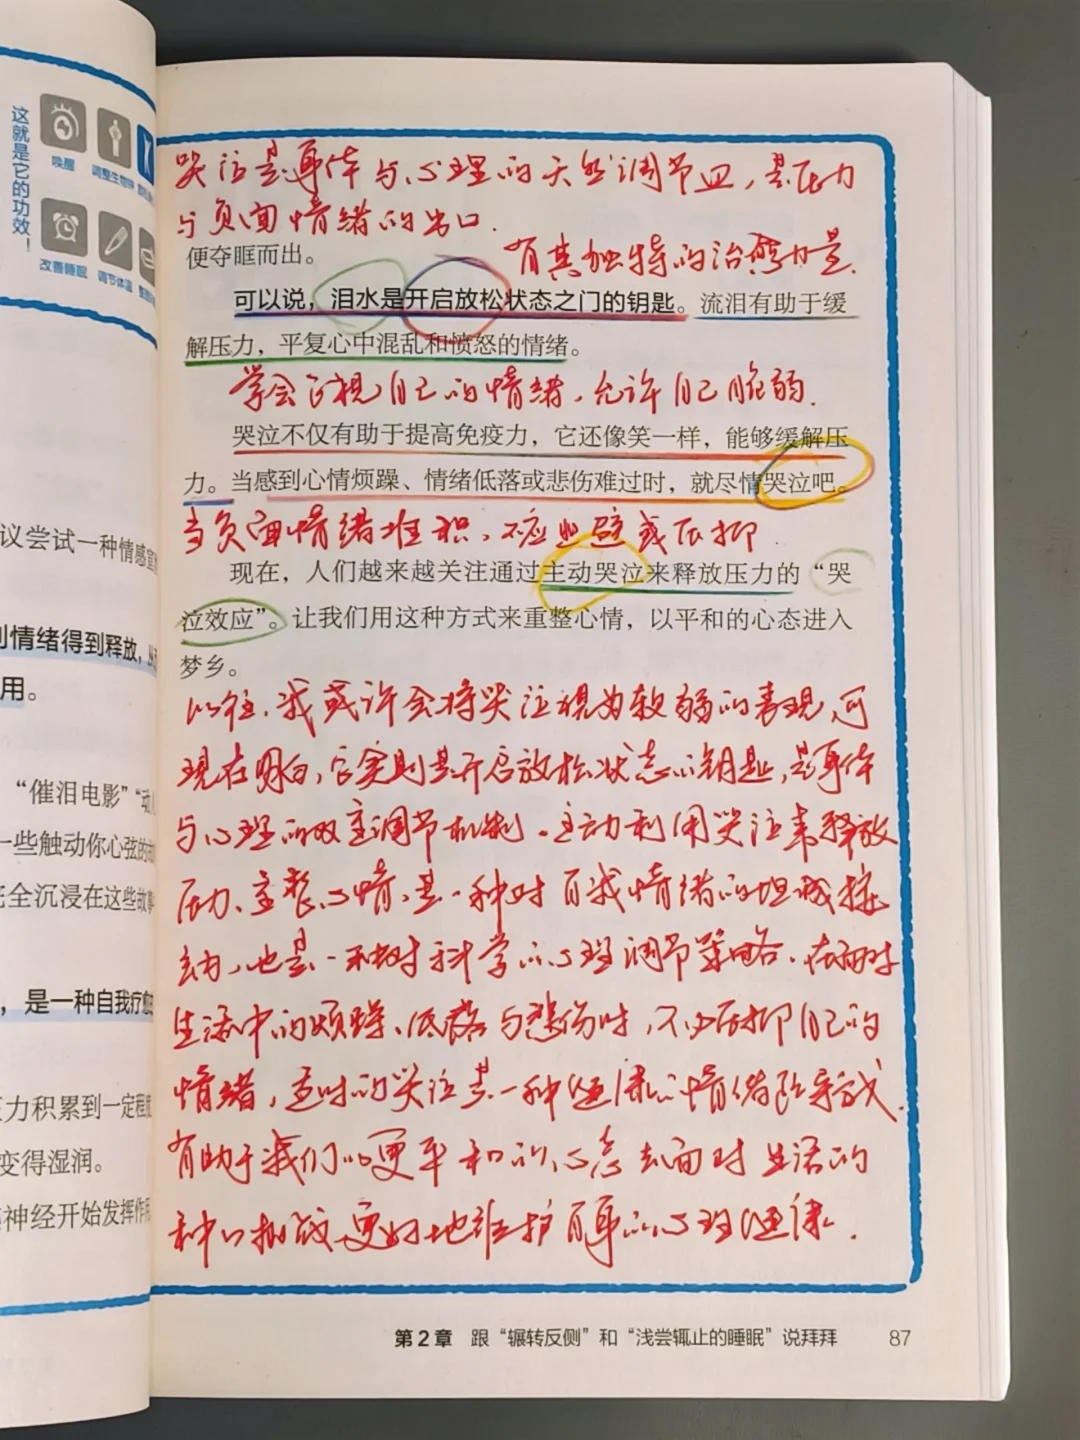 这就是它的功效！
唤醒
调整生物钟
改善睡眠
调节体温
议尝试一种情感宣
情绪得到释放，
用。
“催泪电影”“动
一些触动你心弦的
完全沉浸在这些故事
，是一种自我疗愈
压力积累到一定程度
变得湿润。
神经开始发挥作用
哭泣是身体与心理的天然调节皿，是压力
与负面情绪的出口.
便夺眶而出。
有其独特的治愈力量.
可以说，泪水是开启放松状态之门的钥匙。流泪有助于缓
解压力，平复心中混乱和愤怒的情绪。
学会正视自己的情绪，允许自己脆弱.
哭泣不仅有助于提高免疫力，它还像笑一样，能够缓解压
力。当感到心情烦躁、情绪低落或悲伤难过时，就尽情哭泣吧。
当负面情绪堆积，不应逃避或压抑.
现在，人们越来越关注通过主动哭泣来释放压力的“哭
泣效应”。让我们用这种方式来重整心情，以平和的心态进入
梦乡。
以往，我或许会将哭泣视为软弱的表现，可
现在明白，它实则是开启放松状态的钥匙，是身体
与心理的双重调节机制。主动利用哭泣来释放
压力、重整心情，是一种对自我情绪的坦诚接
纳，也是一种科学的心理调节策略。在面对
生活中的烦躁、低落与悲伤时，不必压抑自己的
情绪，适时的哭泣是一种健康的情绪疏导方式.
有助于我们以更平和的心态去面对生活的
种种挑战，更好地维护自身的心理健康.
第2章 跟“辗转反侧”和“浅尝辄止的睡眠”说拜拜 87